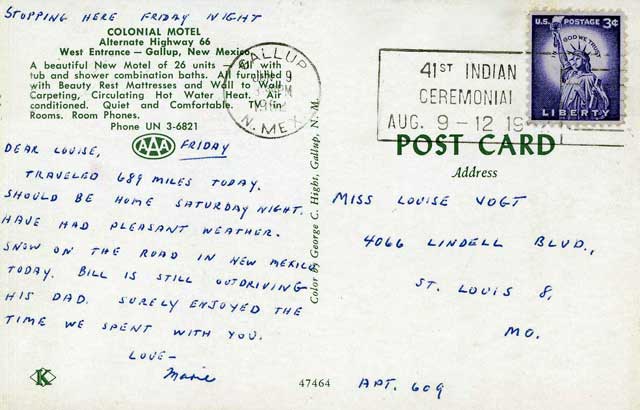 STOPPING HERE FRIDAY NIGHT
COLONIAL MOTEL
Alternate Highway 66
West Entrance — Gallup, New Mexico
A beautiful New Motel of 26 units — All with
tub and shower combination baths. All furnished
with Beauty Rest Mattresses and Wall to Wall
Carpeting, Circulating Hot Water Heat. Air
conditioned. Quiet and Comfortable. TV in
Rooms. Room Phones.
Phone UN 3-6821
AAA
FRIDAY
DEAR LOUISE,
TRAVELED 689 MILES TODAY.
SHOULD BE HOME SATURDAY NIGHT.
HAVE HAD PLEASANT WEATHER.
SNOW ON THE ROAD IN NEW MEXICO
TODAY. BILL IS STILL OUTDRIVING
HIS DAD. SURELY ENJOYED THE
TIME WE SPENT WITH YOU.
LOVE—
Marie
K
Color by George C. Hight, Gallup, N. M.
47464
GALLUP
9
PM
N. MEX.
41ST INDIAN
CEREMONIAL
AUG. 9 - 12 19
U.S. POSTAGE 3¢
IN GOD WE TRUST
LIBERTY
POST CARD
Address
MISS LOUISE VOGT
4066 LINDELL BLVD.,
ST. LOUIS 8,
MO.
APT. 609